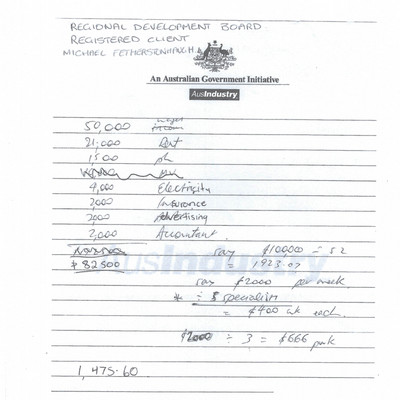 REGIONAL DEVELOPMENT BOARD
REGISTERED CLIENT
MICHAEL FETHERSTONHAUGH.
An Australian Government Initiative
AusIndustry
50,000 wages
21,000 Rent
1,500 ph
4,000 Electricity
2,000 Insurance
2,000 Advertising
2,000 Accountant.
say $100000 ÷ 52
$82500 = 1923.07
AusIndustry
say $2000 per week
* ÷ 5 specialists
= $400 wk each.
$2000 ÷ 3 = $666
1,475.60